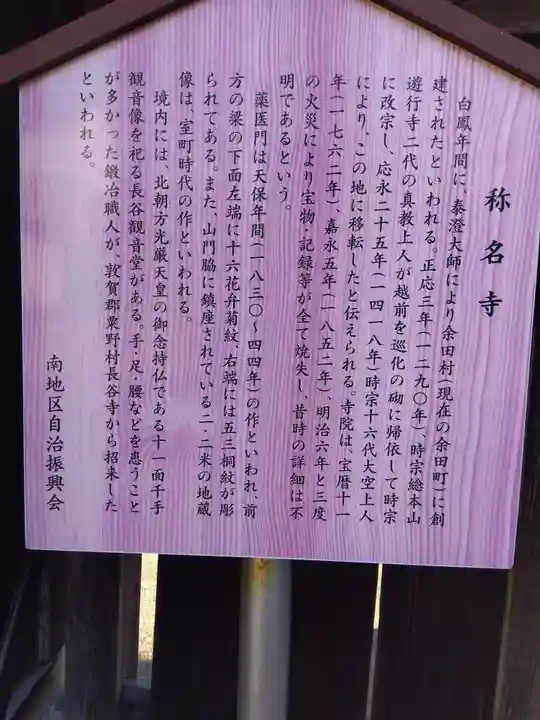 称名寺
白鳳年間に、泰澄大師により余田村(現在の余田町)に創
建されたといわれる。正応三年(一二九〇年)、時宗総本山
遊行寺二代の真教上人が越前を巡化の砌に帰依して時宗
に改宗し、応永二十五年(一四一八年)時宗十六代大空上人
により、この地に移転したと伝えられる。寺院は、宝暦十一
年(一七六二年)、嘉永五年(一八五二年)、明治六年と三度
の火災により宝物・記録等が全て焼失し、昔時の詳細は不
明であるという。
薬医門は天保年間(一八三〇~四四年)の作といわれ、前
方の梁の下面左端に十六花弁菊紋、右端には五三桐紋が彫
られてある。また、山門脇に鎮座されている二・二米の地蔵
像は、室町時代の作といわれる。
境内には、北朝方光厳天皇の御念持仏である十一面千手
観音像を祀る長谷観音堂がある。手・足・腰などを患うこと
が多かった鍛冶職人が、敦賀郡粟野村長谷寺から招来した
といわれる。
南地区自治振興会